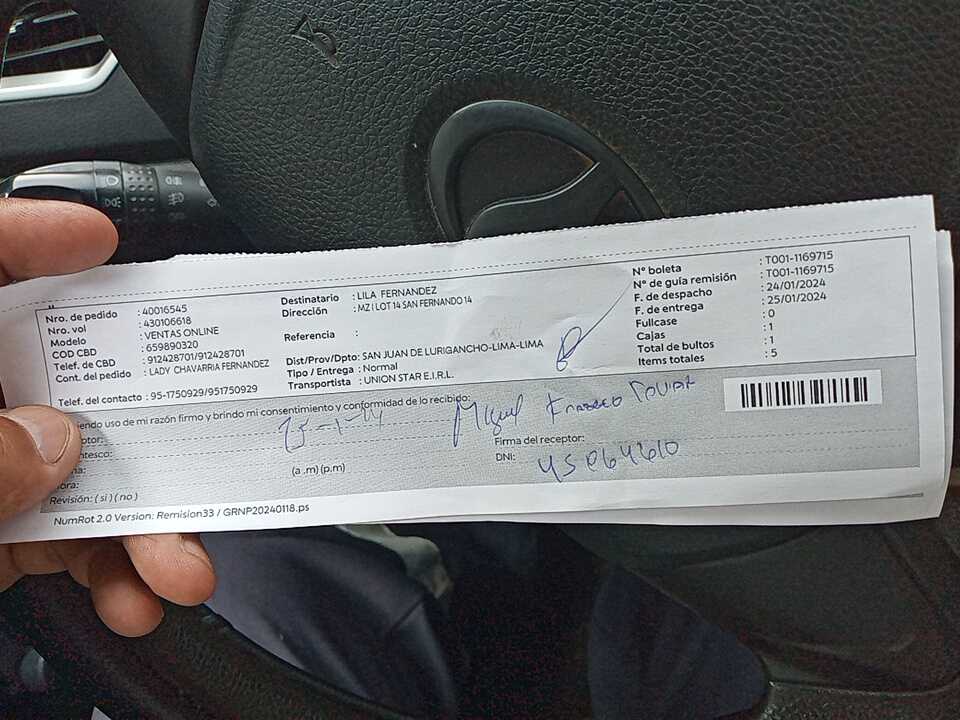 Nro. de pedido : 40016545
Nro. vol : 430106618
Modelo : VENTAS ONLINE
COD CBD : 659890320
Telef. de CBD : 912428701/912428701
Cont. del pedido : LADY CHAVARRIA FERNANDEZ
Telef. del contacto : 95-1750929/951750929
Destinatario : LILA FERNANDEZ
Dirección : MZ I LOT 14 SAN FERNANDO 14
Referencia :
Dist/Prov/Dpto: SAN JUAN DE LURIGANCHO-LIMA-LIMA
Tipo / Entrega : Normal
Transportista : UNION STAR E.I.R.L.
N° boleta : T001-1169715
N° de guía remisión : T001-1169715
F. de despacho : 24/01/2024
F. de entrega : 25/01/2024
Fullcase : 0
Cajas : 1
Total de bultos : 1
Items totales : 5
iendo uso de mi razón firmo y brindo mi consentimiento y conformidad de lo recibido:
ptor:
ntesco:
Miguel
Firma del receptor:
DNI:
ha:
ora:
(a .m) (p.m)
Revisión: ( si ) ( no )
NumRot 2.0 Version: Remision33 / GRNP20240118.ps